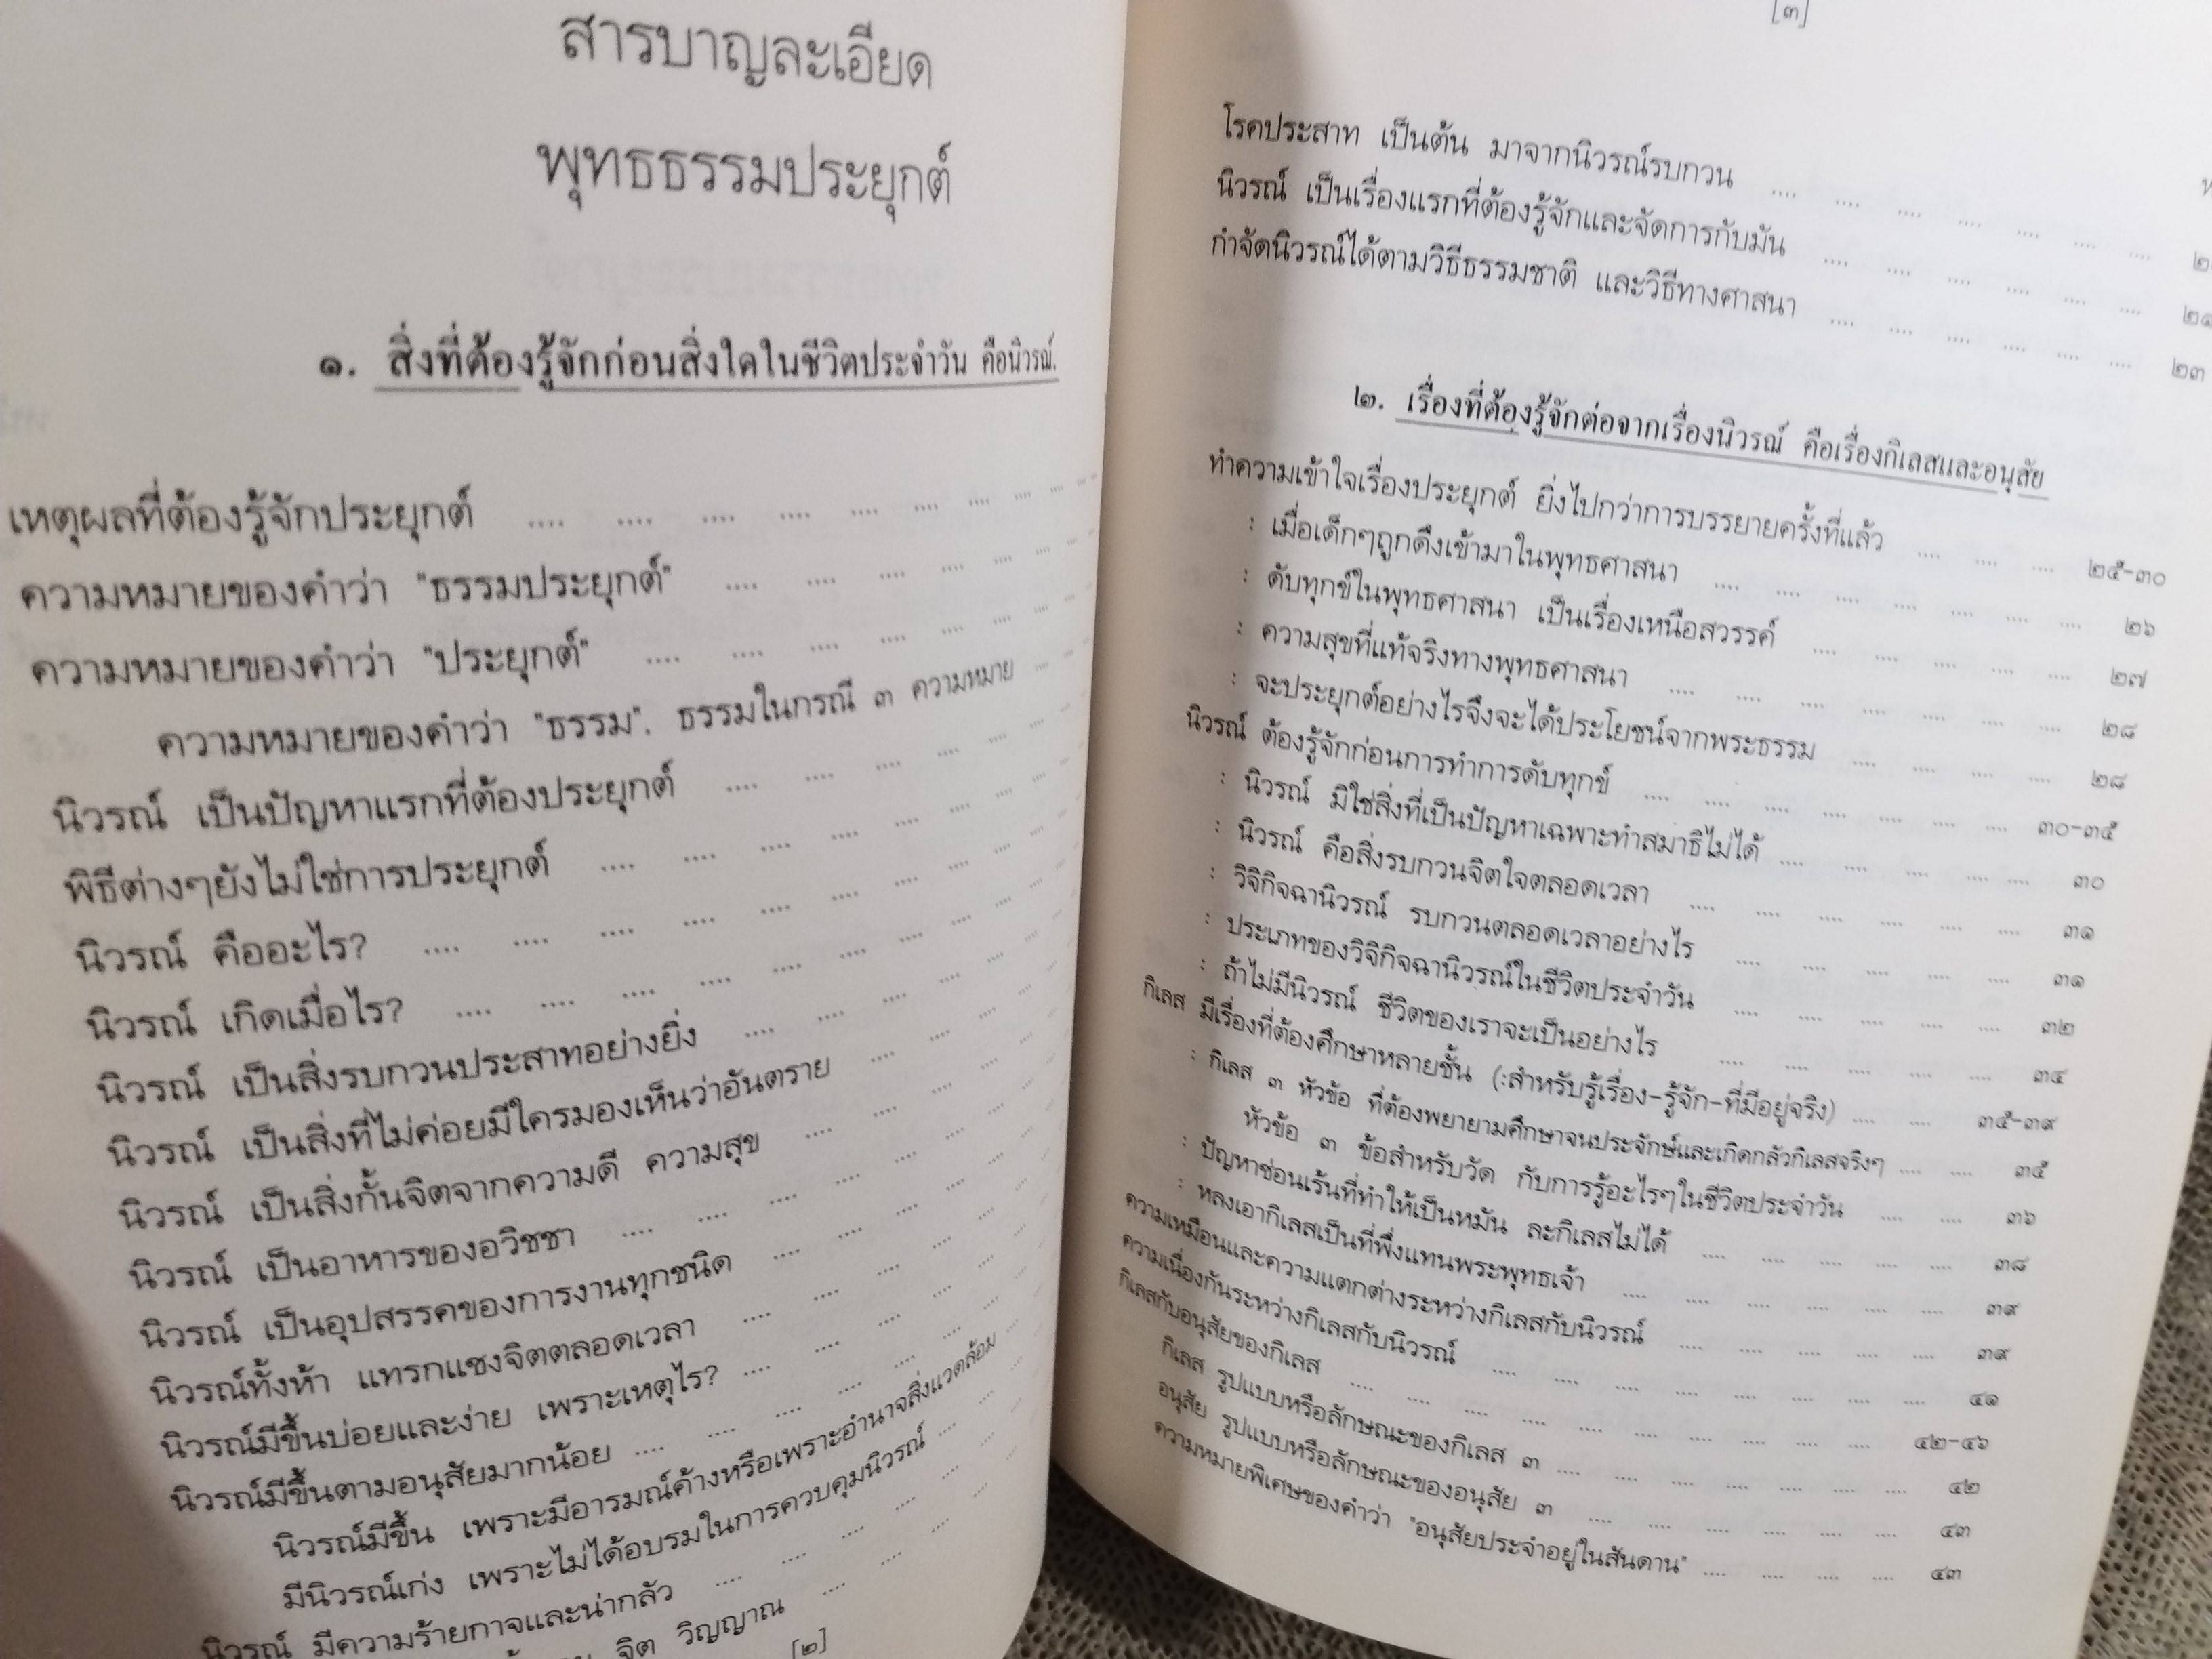 สารบาญละเอียด
พุทธธรรมประยุกต์
๑. สิ่งที่ต้องรู้จักก่อนสิ่งใดในชีวิตประจำวัน คือนิวรณ์.
เหตุผลที่ต้องรู้จักประยุกต์ .... .... .... .... .... .... .... .... .... ....
ความหมายของคำว่า "ธรรมประยุกต์" .... .... .... .... .... .... ....
ความหมายของคำว่า "ประยุกต์" .... .... .... .... .... .... .... ....
ความหมายของคำว่า "ธรรม". ธรรมในกรณี ๓ ความหมาย .... ....
นิวรณ์ เป็นปัญหาแรกที่ต้องประยุกต์ .... .... .... .... .... .... ....
พิธีต่างๆยังไม่ใช่การประยุกต์ .... .... .... .... .... .... .... ....
นิวรณ์ คืออะไร? .... .... .... .... .... .... .... .... ....
นิวรณ์ เกิดเมื่อไร? .... .... .... .... .... .... .... .... ....
นิวรณ์ เป็นสิ่งรบกวนประสาทอย่างยิ่ง .... .... .... .... .... ....
นิวรณ์ เป็นสิ่งที่ไม่ค่อยมีใครมองเห็นว่าอันตราย .... .... .... ....
นิวรณ์ เป็นสิ่งกั้นจิตจากความดี ความสุข .... .... .... .... ....
นิวรณ์ เป็นอาหารของอวิชชา .... .... .... .... .... .... ....
นิวรณ์ เป็นอุปสรรคของการงานทุกชนิด .... .... .... .... ....
นิวรณ์ทั้งห้า แทรกแซงจิตตลอดเวลา .... .... .... .... ....
นิวรณ์มีขึ้นบ่อยและง่าย เพราะเหตุไร? .... .... .... .... ....
นิวรณ์มีขึ้นตามอนุสัยมากน้อย .... .... .... .... .... ....
นิวรณ์มีขึ้น เพราะมีอารมณ์ค้างหรือเพราะอำนาจสิ่งแวดล้อม ....
มีนิวรณ์เก่ง เพราะไม่ได้อบรมในการควบคุมนิวรณ์ .... ....
นิวรณ์ มีความร้ายกาจและน่ากลัว .... .... .... .... ....
จิต วิญญาณ .... ....
[๒]
[๓]
โรคประสาท เป็นต้น มาจากนิวรณ์รบกวน .... .... .... .... .... .... ....
นิวรณ์ เป็นเรื่องแรกที่ต้องรู้จักและจัดการกับมัน .... .... .... .... .... ....
กำจัดนิวรณ์ได้ตามวิธีธรรมชาติ และวิธีทางศาสนา .... .... .... .... .... .... ๒๓
๒. เรื่องที่ต้องรู้จักต่อจากเรื่องนิวรณ์ คือเรื่องกิเลสและอนุสัย
ทำความเข้าใจเรื่องประยุกต์ ยิ่งไปกว่าการบรรยายครั้งที่แล้ว .... .... .... ๒๕-๓๐
: เมื่อเด็กๆถูกดึงเข้ามาในพุทธศาสนา .... .... .... .... .... .... .... ๒๖
: ดับทุกข์ในพุทธศาสนา เป็นเรื่องเหนือสวรรค์ .... .... .... .... .... ๒๗
: ความสุขที่แท้จริงทางพุทธศาสนา .... .... .... .... .... .... .... ๒๘
: จะประยุกต์อย่างไรจึงจะได้ประโยชน์จากพระธรรม .... .... .... .... ๒๘
นิวรณ์ ต้องรู้จักก่อนการทำการดับทุกข์ .... .... .... .... .... .... .... ๓๐-๓๕
: นิวรณ์ มิใช่สิ่งที่เป็นปัญหาเฉพาะทำสมาธิไม่ได้ .... .... .... .... .... ๓๐
: นิวรณ์ คือสิ่งรบกวนจิตใจตลอดเวลา .... .... .... .... .... .... ๓๑
: วิจิกิจฉานิวรณ์ รบกวนตลอดเวลาอย่างไร .... .... .... .... .... ๓๑
: ประเภทของวิจิกิจฉานิวรณ์ในชีวิตประจำวัน .... .... .... .... .... ๓๒
: ถ้าไม่มีนิวรณ์ ชีวิตของเราจะเป็นอย่างไร .... .... .... .... .... ๓๔
กิเลส มีเรื่องที่ต้องศึกษาหลายชั้น (:สำหรับรู้เรื่อง-รู้จัก-ที่มีอยู่จริง) .... .... ๓๕-๓๙
: กิเลส ๓ หัวข้อ ที่ต้องพยายามศึกษาจนประจักษ์และเกิดกลัวกิเลสจริงๆ .... .... ๓๕
หัวข้อ ๓ ข้อสำหรับวัด กับการรู้อะไรๆในชีวิตประจำวัน .... .... ๓๖
: ปัญหาซ่อนเร้นที่ทำให้เป็นหมัน ละกิเลสไม่ได้ .... .... .... .... .... ๓๘
: หลงเอากิเลสเป็นที่พึ่งแทนพระพุทธเจ้า .... .... .... .... .... .... ๓๙
ความเหมือนและความแตกต่างระหว่างกิเลสกับนิวรณ์ .... .... .... .... .... ๓๙
ความเนื่องกันระหว่างกิเลสกับนิวรณ์ .... .... .... .... .... .... .... .... ๔๑
กิเลสกับอนุสัยของกิเลส .... .... .... .... .... .... .... .... .... ๔๒-๔๖
กิเลส รูปแบบหรือลักษณะของกิเลส ๓ .... .... .... .... .... .... ๔๒
อนุสัย รูปแบบหรือลักษณะของอนุสัย ๓ .... .... .... .... .... .... ๔๓
ความหมายพิเศษของคำว่า "อนุสัยประจำอยู่ในสันดาน" .... .... .... .... ๔๓